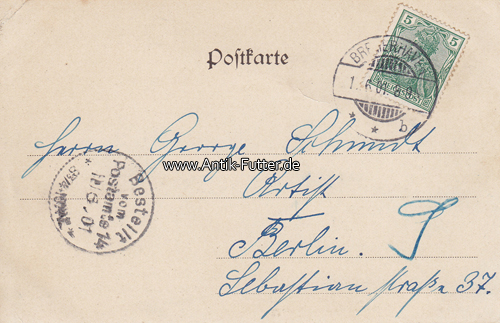 Postkarte
5 5
BREMERHAVEN
1.6.01. 8-9
* * b
Herrn George Schmidt
www.Antik-Futter.de
Artist
Berlin. S
Sebastian straße 37.
Bestellt
vom
Postamte 14
1/6.01